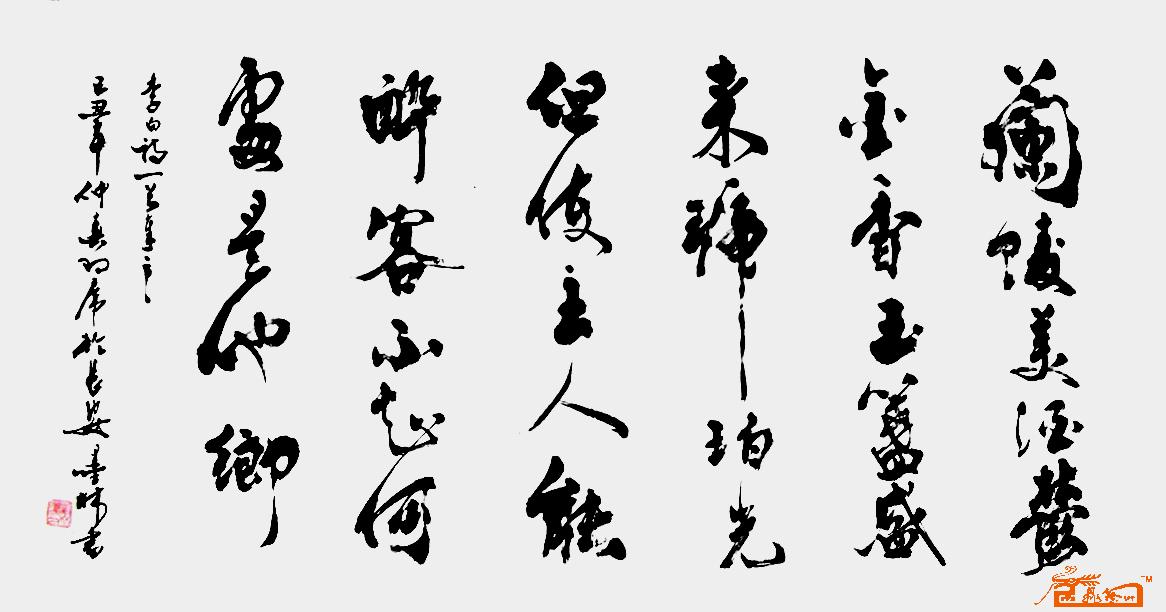 蘭陵美酒鬱
金香玉盞盛
来琥珀光
但使主人能
醉客不知何
處是他鄉
李白詩一首
己丑年仲春於長安林書